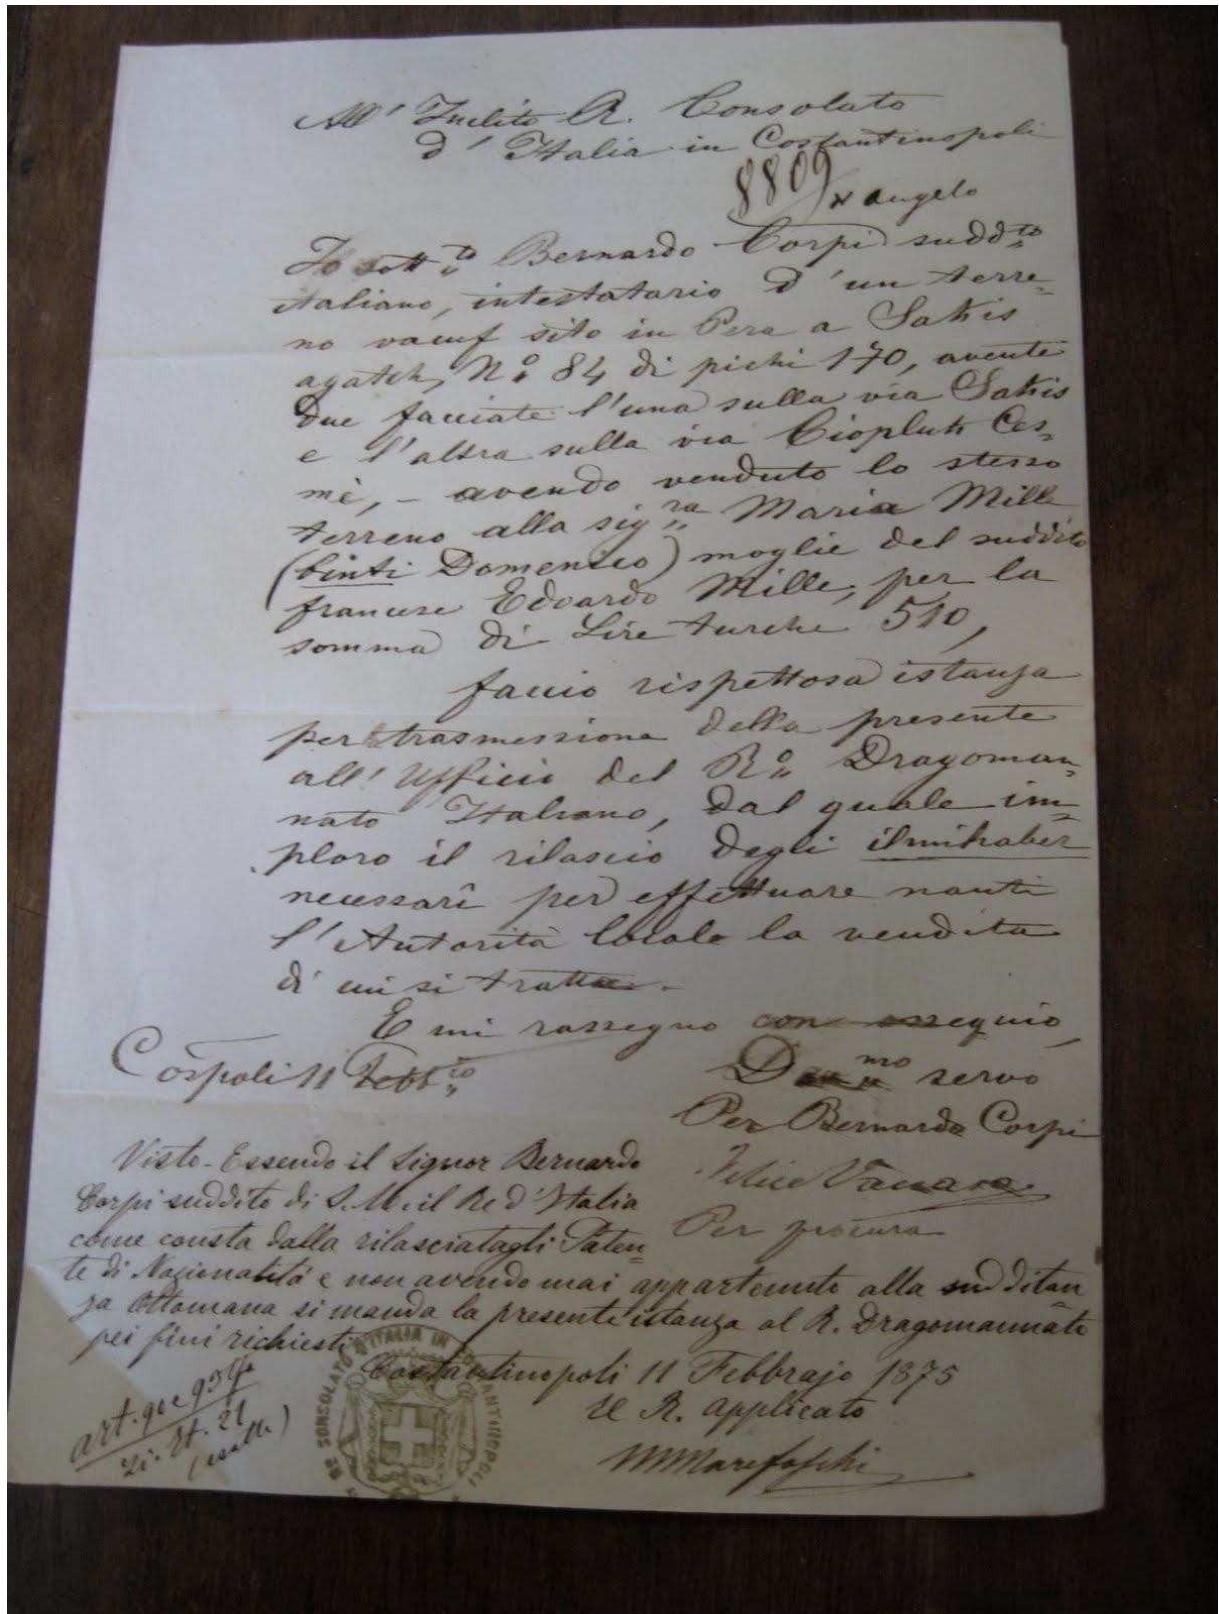 All' Inclito R. Consolato
d'Italia in Costantinopoli
8809
angelo
Io sott.to Bernardo Corpi sudd.to
italiano, intestatario d'un terre-
no vacuf sito in Pera a Sakis
agatch, N.o 84 di pichi 170, avente
due facciate l'una sulla via Sakis
e l'altra sulla via Ciopluk Ces-
mè, - avendo venduto lo stesso
terreno alla sig.ra Maria Mille
(binti Domenico) moglie del suddito
francese Edoardo Mille, per la
somma di Lire turche 510,
faccio rispettosa istanza
per trasmissione della presente
all' Ufficio del R.o Dragoman-
nato Italiano, dal quale im-
ploro il rilascio degli ilmihaber
necessarî per effettuare nanti
l'Autorità locale la vendita
di cui si tratta.
E mi rassegno con ossequio,
Cospoli 11 Febb.io
mo servo
Per Bernardo Corpi
Felice
Per procura
Visto. Essendo il Signor Bernardo
Corpi suddito di S. M. il Re d'Italia
come consta dalla rilasciatagli Paten-
te di Nazionalità e non avendo mai appartenuto alla sudditan-
za Ottomana si manda la presente istanza al R. Dragomannato
pei fini richiesti
Costantinopoli 11 Febbrajo 1875
Il R. Applicato
M Marefoschi
art. 90 e 93
21
CONSOLATO D'ITALIA IN COSTANTINOPOLI